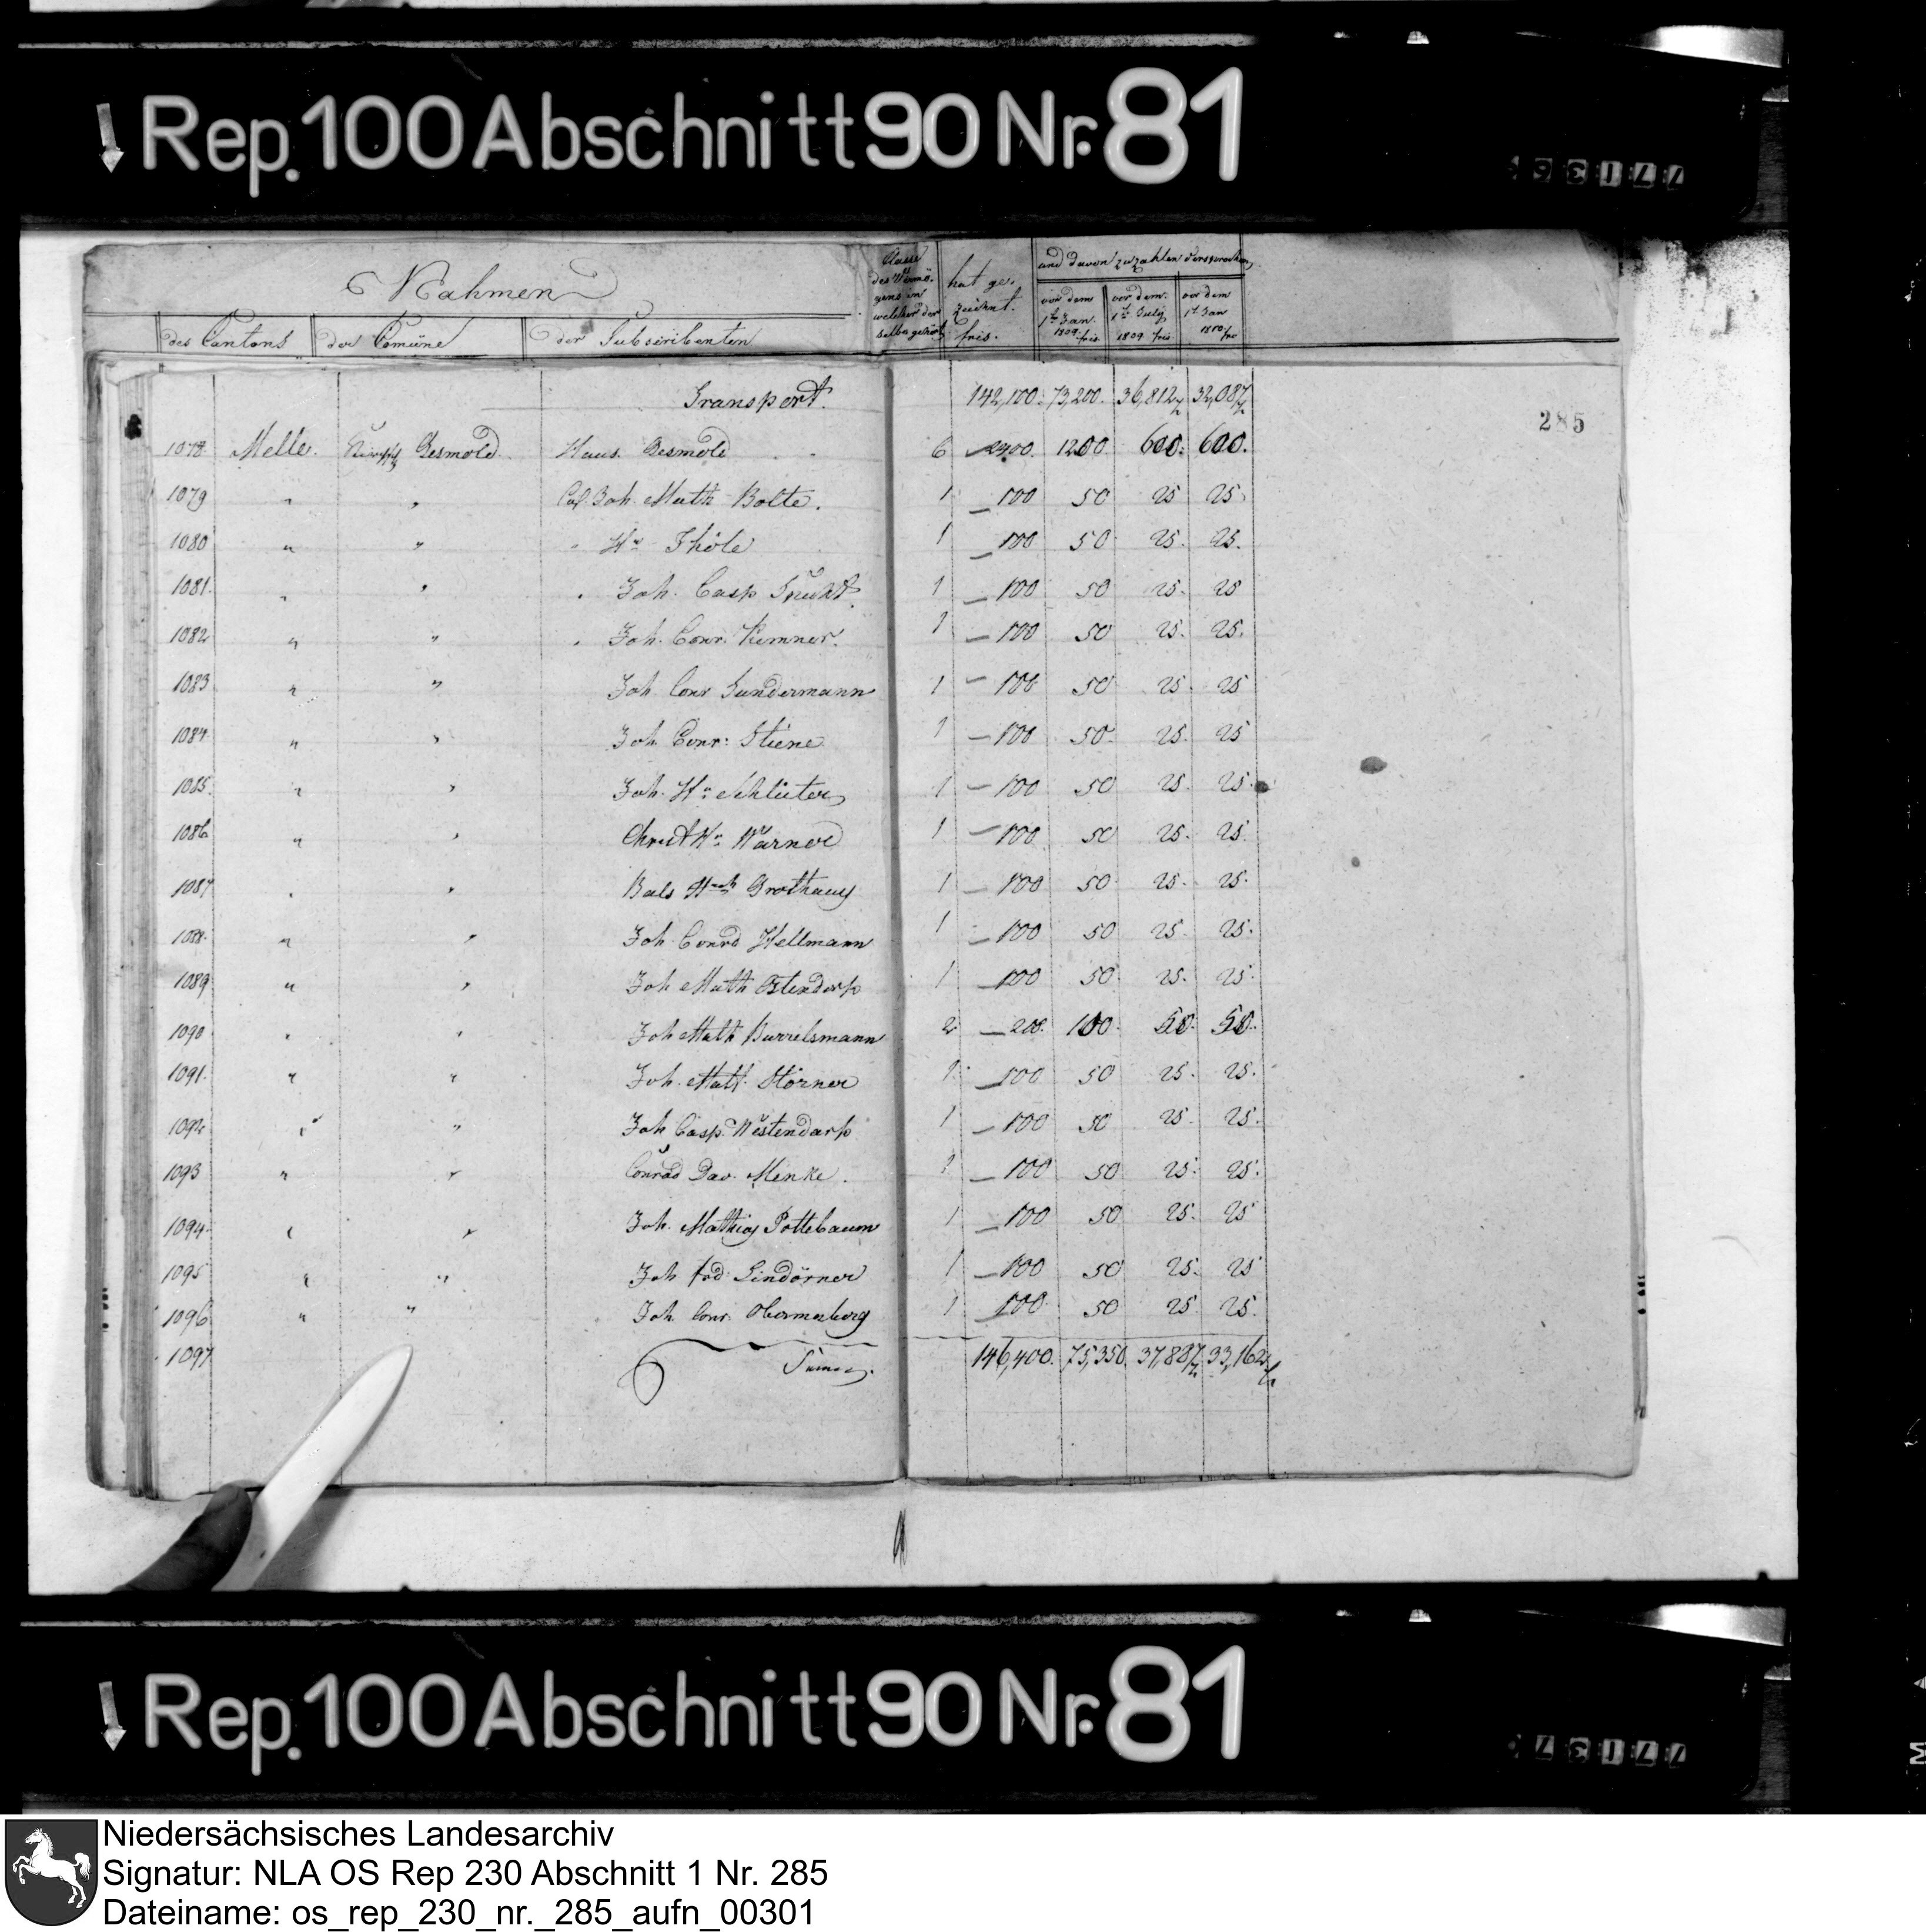 Rep. 100 Abschnitt 90 Nr. 81
Nahmen
des Cantons der Comüne der Subscribenten
Classe des Vermögens in welcher der selbe gehört
hat gezeichnet. frcs.
und davon zu zahlen versprochen
vor dem 1t Jan. 1809. frcs. vor dem 1t July 1809 frcs vor dem 1t Jan 1810. frc
285
Transport. 142,100. 73,200. 36,812½ 32,087½
1078 Melle. Gesmold Haus Gesmold 6 2400. 1200 600. 600.
1079 " " Col. Joh. Math Bolte. 1 100 50 25 25
1080 " " " Hr Thöle 1 100 50 25. 25.
1081. " " " Joh. Casp 1 100 50 25. 25
1082 " " " Joh. Conr. Kemner. 1 100 50 25. 25.
1083 " " Joh Conr Sundermann 1 100 50 25. 25
1084 " " Joh Conr: Stiene 1 100 50. 25. 25
1085. " " Joh. Hr: Schlüter 1 100 50 25. 25.
1086 " " Christ Hr: Warner 1 100 50 25. 25.
1087 " " Bals Grothaus 1 100 50 25. 25.
1088. " " Joh Conrd Hellmann 1 100 50 25. 25.
1089 " " Joh Math Ostendorp 1 100 50 25. 25.
1090 " " Joh Math Burrelsmann 2 200. 100. 50. 50.
1091. " " Joh. Math. Störner 1 100 50 25. 25.
1092 " " Joh Casp. Westendarp 1 100 50 25. 25.
1093 " " Conrad Dav. Menke. 1 100 50 25. 25.
1094. " " Joh. Mathias Pottebaum 1 100 50 25. 25
1095 " " Joh Jod Lindörner 1 100 50 25. 25
1096 " " Joh Conr. Obermesberg 1 100 50 25 25.
1097 Summa. 146,400. 75,350. 37,887½ 33,162½
Rep. 100 Abschnitt 90 Nr. 81
Niedersächsisches Landesarchiv
Signatur: NLA OS Rep 230 Abschnitt 1 Nr. 285
Dateiname: os_rep_230_nr._285_aufn_00301